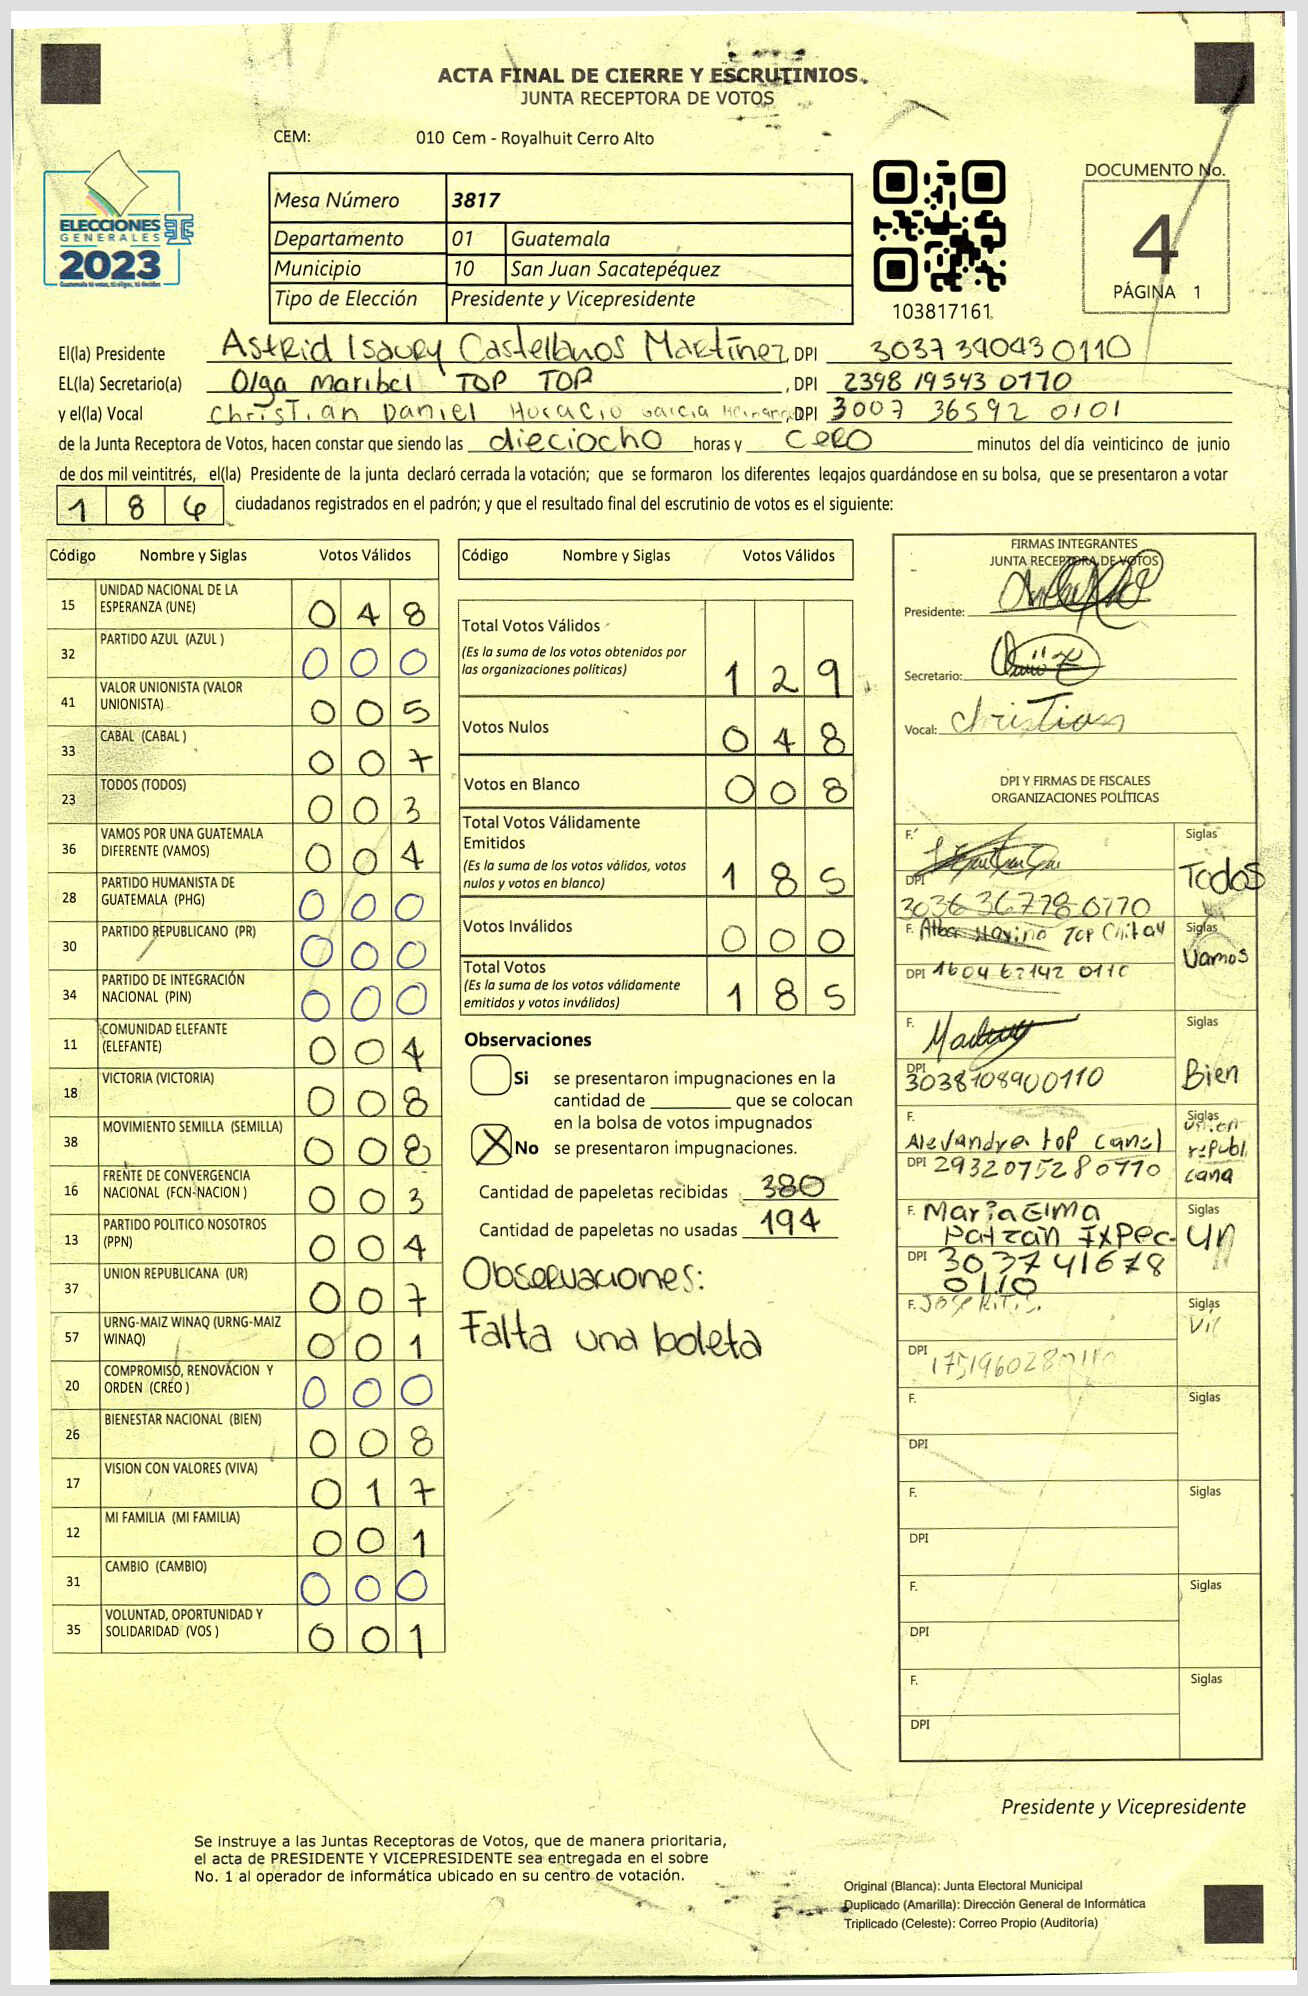 ACTA FINAL DE CIERRE Y ESCRUTINIOS
JUNTA RECEPTORA DE VOTOS
CEM: 010 Cem - Royalhuit Cerro Alto
ELECCIONES
GENERALES
2023
Guatemala tú votas, tú eliges, tú decides
Mesa Número 3817
Departamento 01 Guatemala
Municipio 10 San Juan Sacatepéquez
Tipo de Elección Presidente y Vicepresidente
103817161
DOCUMENTO No.
4
PÁGINA 1
El(la) Presidente Astrid Isaury Castellanos Martínez, DPI 3037390430110
EL(la) Secretario(a) Olga Maribel TOP TOP, DPI 2398 19543 0770
y el(la) Vocal Christian Daniel Horacio Garcia DPI 3007 36592 0101
de la Junta Receptora de Votos, hacen constar que siendo las dieciocho horas y cero minutos del día veinticinco de junio
de dos mil veintitrés, el(la) Presidente de la junta declaró cerrada la votación; que se formaron los diferentes legajos guardándose en su bolsa, que se presentaron a votar
186 ciudadanos registrados en el padrón; y que el resultado final del escrutinio de votos es el siguiente:
Código Nombre y Siglas Votos Válidos
15 UNIDAD NACIONAL DE LA
ESPERANZA (UNE) 048
32 PARTIDO AZUL (AZUL ) 000
41 VALOR UNIONISTA (VALOR
UNIONISTA) 005
33 CABAL (CABAL ) 007
23 TODOS (TODOS) 003
36 VAMOS POR UNA GUATEMALA
DIFERENTE (VAMOS) 004
28 PARTIDO HUMANISTA DE
GUATEMALA (PHG) 000
30 PARTIDO REPUBLICANO (PR) 000
34 PARTIDO DE INTEGRACIÓN
NACIONAL (PIN) 000
11 COMUNIDAD ELEFANTE
(ELEFANTE) 004
18 VICTORIA (VICTORIA) 008
38 MOVIMIENTO SEMILLA (SEMILLA) 008
16 FRENTE DE CONVERGENCIA
NACIONAL (FCN-NACION ) 003
13 PARTIDO POLITICO NOSOTROS
(PPN) 004
37 UNION REPUBLICANA (UR) 007
57 URNG-MAIZ WINAQ (URNG-MAIZ
WINAQ) 001
20 COMPROMISO, RENOVACION Y
ORDEN (CREO ) 000
26 BIENESTAR NACIONAL (BIEN) 008
17 VISION CON VALORES (VIVA) 017
12 MI FAMILIA (MI FAMILIA) 001
31 CAMBIO (CAMBIO) 000
35 VOLUNTAD, OPORTUNIDAD Y
SOLIDARIDAD (VOS ) 001
Código Nombre y Siglas Votos Válidos
Total Votos Válidos
(Es la suma de los votos obtenidos por
las organizaciones políticas) 129
Votos Nulos 048
Votos en Blanco 008
Total Votos Válidamente
Emitidos
(Es la suma de los votos válidos, votos
nulos y votos en blanco) 185
Votos Inválidos 000
Total Votos
(Es la suma de los votos válidamente
emitidos y votos inválidos) 185
Observaciones
Si se presentaron impugnaciones en la
cantidad de ________ que se colocan
en la bolsa de votos impugnados
X No se presentaron impugnaciones.
Cantidad de papeletas recibidas 380
Cantidad de papeletas no usadas 194
Observaciones:
Falta una boleta
FIRMAS INTEGRANTES
JUNTA RECEPTORA DE VOTOS
Presidente:
Secretario:
Vocal: Christian
DPI Y FIRMAS DE FISCALES
ORGANIZACIONES POLÍTICAS
F. Siglas
Todos
DPI
3036 36778 0770
F. Top Siglas
Vamos
DPI 1604 62142 0110
F. Siglas
DPI
3038108900110 Bien
F. Siglas
Alexandra top canel union
republi
cana
DPI 2932075280770
F. Maria Elma Siglas
Patzan Ixpec- UN
DPI 3037 41678
0110
F. Siglas
DPI
F. Siglas
DPI
F. Siglas
DPI
F. Siglas
DPI
F. Siglas
DPI
Presidente y Vicepresidente
Se instruye a las Juntas Receptoras de Votos, que de manera prioritaria,
el acta de PRESIDENTE Y VICEPRESIDENTE sea entregada en el sobre
No. 1 al operador de informática ubicado en su centro de votación.
Original (Blanca): Junta Electoral Municipal
Duplicado (Amarilla): Dirección General de Informática
Triplicado (Celeste): Correo Propio (Auditoría)